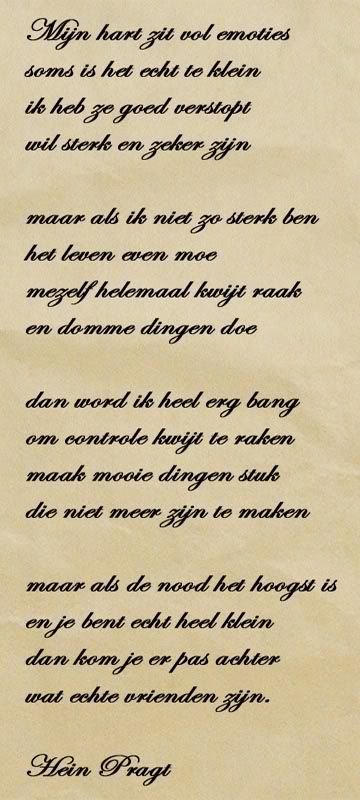 Mijn hart zit vol emoties
soms is het echt te klein
ik heb ze goed verstopt
wil sterk en zeker zijn
maar als ik niet zo sterk ben
het leven even moe
mezelf helemaal kwijt raak
en domme dingen doe
dan word ik heel erg bang
om controle kwijt te raken
maak mooie dingen stuk
die niet meer zijn te maken
maar als de nood het hoogst is
en je bent echt heel klein
dan kom je er pas achter
wat echte vrienden zijn.
Hein Pragt